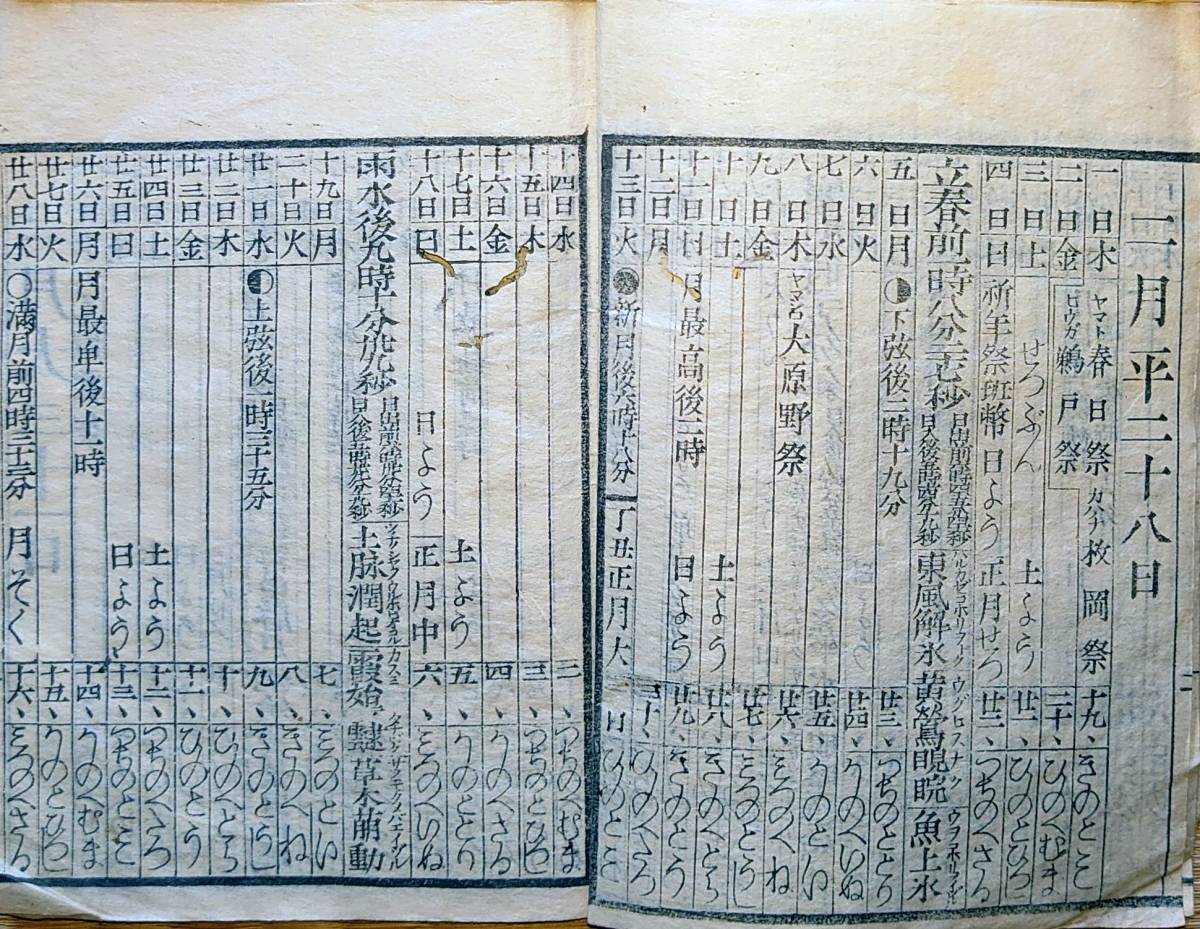 二月平二十八日
一日木 ヤマト 春日祭 カハチ 枚岡祭 十九、 きのとミ
二日金 ヒウガ 鵜戸祭 二十、 ひのへむま
三日土 せつぶん 土よう 廿一、 ひのとひつし
四日日 祈年祭班幣 日よう 正月せつ 廿二、 つちのへさる
立春前一時八分三十七秒 東風解氷 ハルカゼコホリヲトク 黄鶯睍睆 ウグヒスナク 魚上氷
五日月 下弦後二時十九分 廿三、 つちのととり
六日火 廿四、 かのへいぬ
七日水 廿五、 かのとい
八日木 ヤマシロ 大原野祭 廿六、 ミつのへね
九日金 廿七、 ミつのとうし
十日土 土よう 廿八、 きのへとら
十一日日 月最高後三時 日よう 廿九、 きのとう
十二日月 三十、 ひのへたつ
十三日火 新月後六時十八分 丁丑正月大 一日 ひのとミ
十四日水 二、 つちのへむま
十五日木 三、 つちのとひつし
十六日金 四、 かのへさる
十七日土 土よう 五、 かのととり
十八日日 日よう 正月中 六、 ミつのへいぬ
雨水後九時十分 土脉潤起 霞始靆 カスミ 草木萠動
十九日月 七、 ミつのとい
二十日火 八、 きのへね
廿一日水 上弦後一時三十五分 九、 きのとうし
廿二日木 十、 ひのへとら
廿三日金 十一、 ひのとう
廿四日土 土よう 十二、 つちのへたつ
廿五日日 日よう 十三、 つちのとミ
廿六日月 月最卑後十一時 十四、 かのへむま
廿七日火 十五、 かのとひつし
廿八日水 ○満月前四時三十三分 月そく 十六、 ミつのへさる